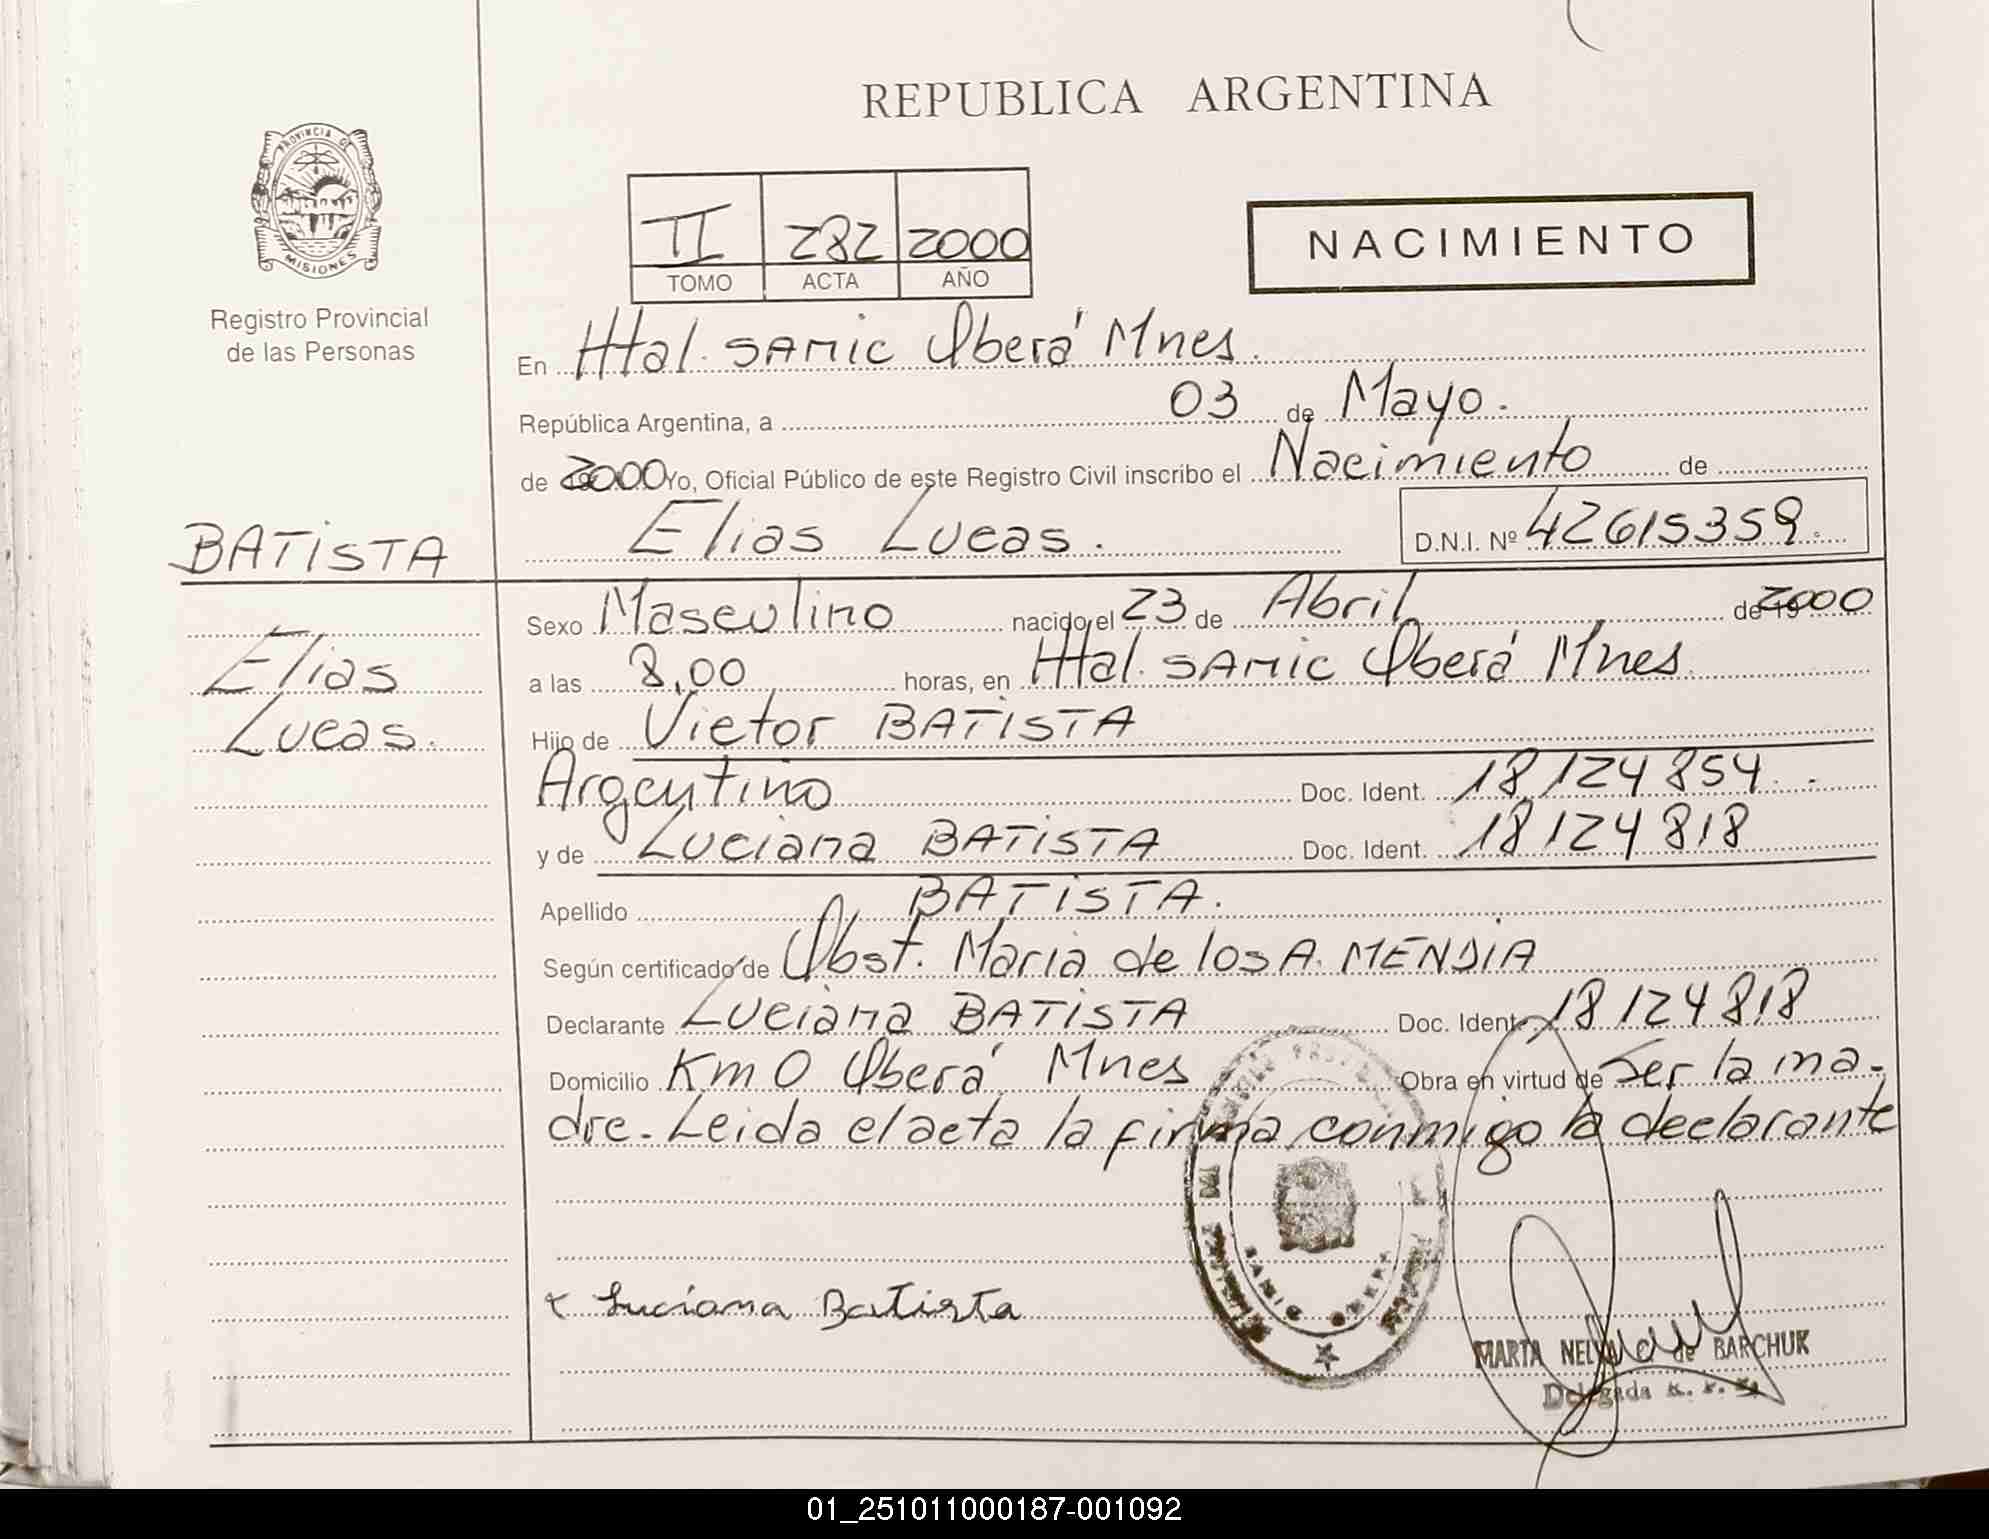 REPUBLICA ARGENTINA
PROVINCIA DE
MISIONES
Registro Provincial
de las Personas
II 282 2000
TOMO ACTA AÑO
NACIMIENTO
En Htal. SAMIC Oberá Mnes.
República Argentina, a 03 de Mayo.
de 2000 Yo, Oficial Público de este Registro Civil inscribo el Nacimiento de
BATISTA
Elias Lucas. D.N.I. Nº 42615359.
Elias
Lucas.
Sexo Masculino nacido el 23 de Abril de 19 2000
a las 8,00 horas, en Htal. SAMIC Oberá Mnes.
Hijo de Victor BATISTA
Argentino Doc. Ident. 18124854.-
y de Luciana BATISTA Doc. Ident. 18124818
Apellido BATISTA.
Según certificado de Obst. Maria de los A. MENDIA
Declarante Luciana BATISTA Doc. Ident. 18124818
Domicilio Km 0 Oberá Mnes Obra en virtud de ser la ma-
dre. Leida el acta la firma conmigo la declarante
Luciana Batista
SAMIC OBERA
MARTA de BARCHUK
Delegada
01_251011000187-001092